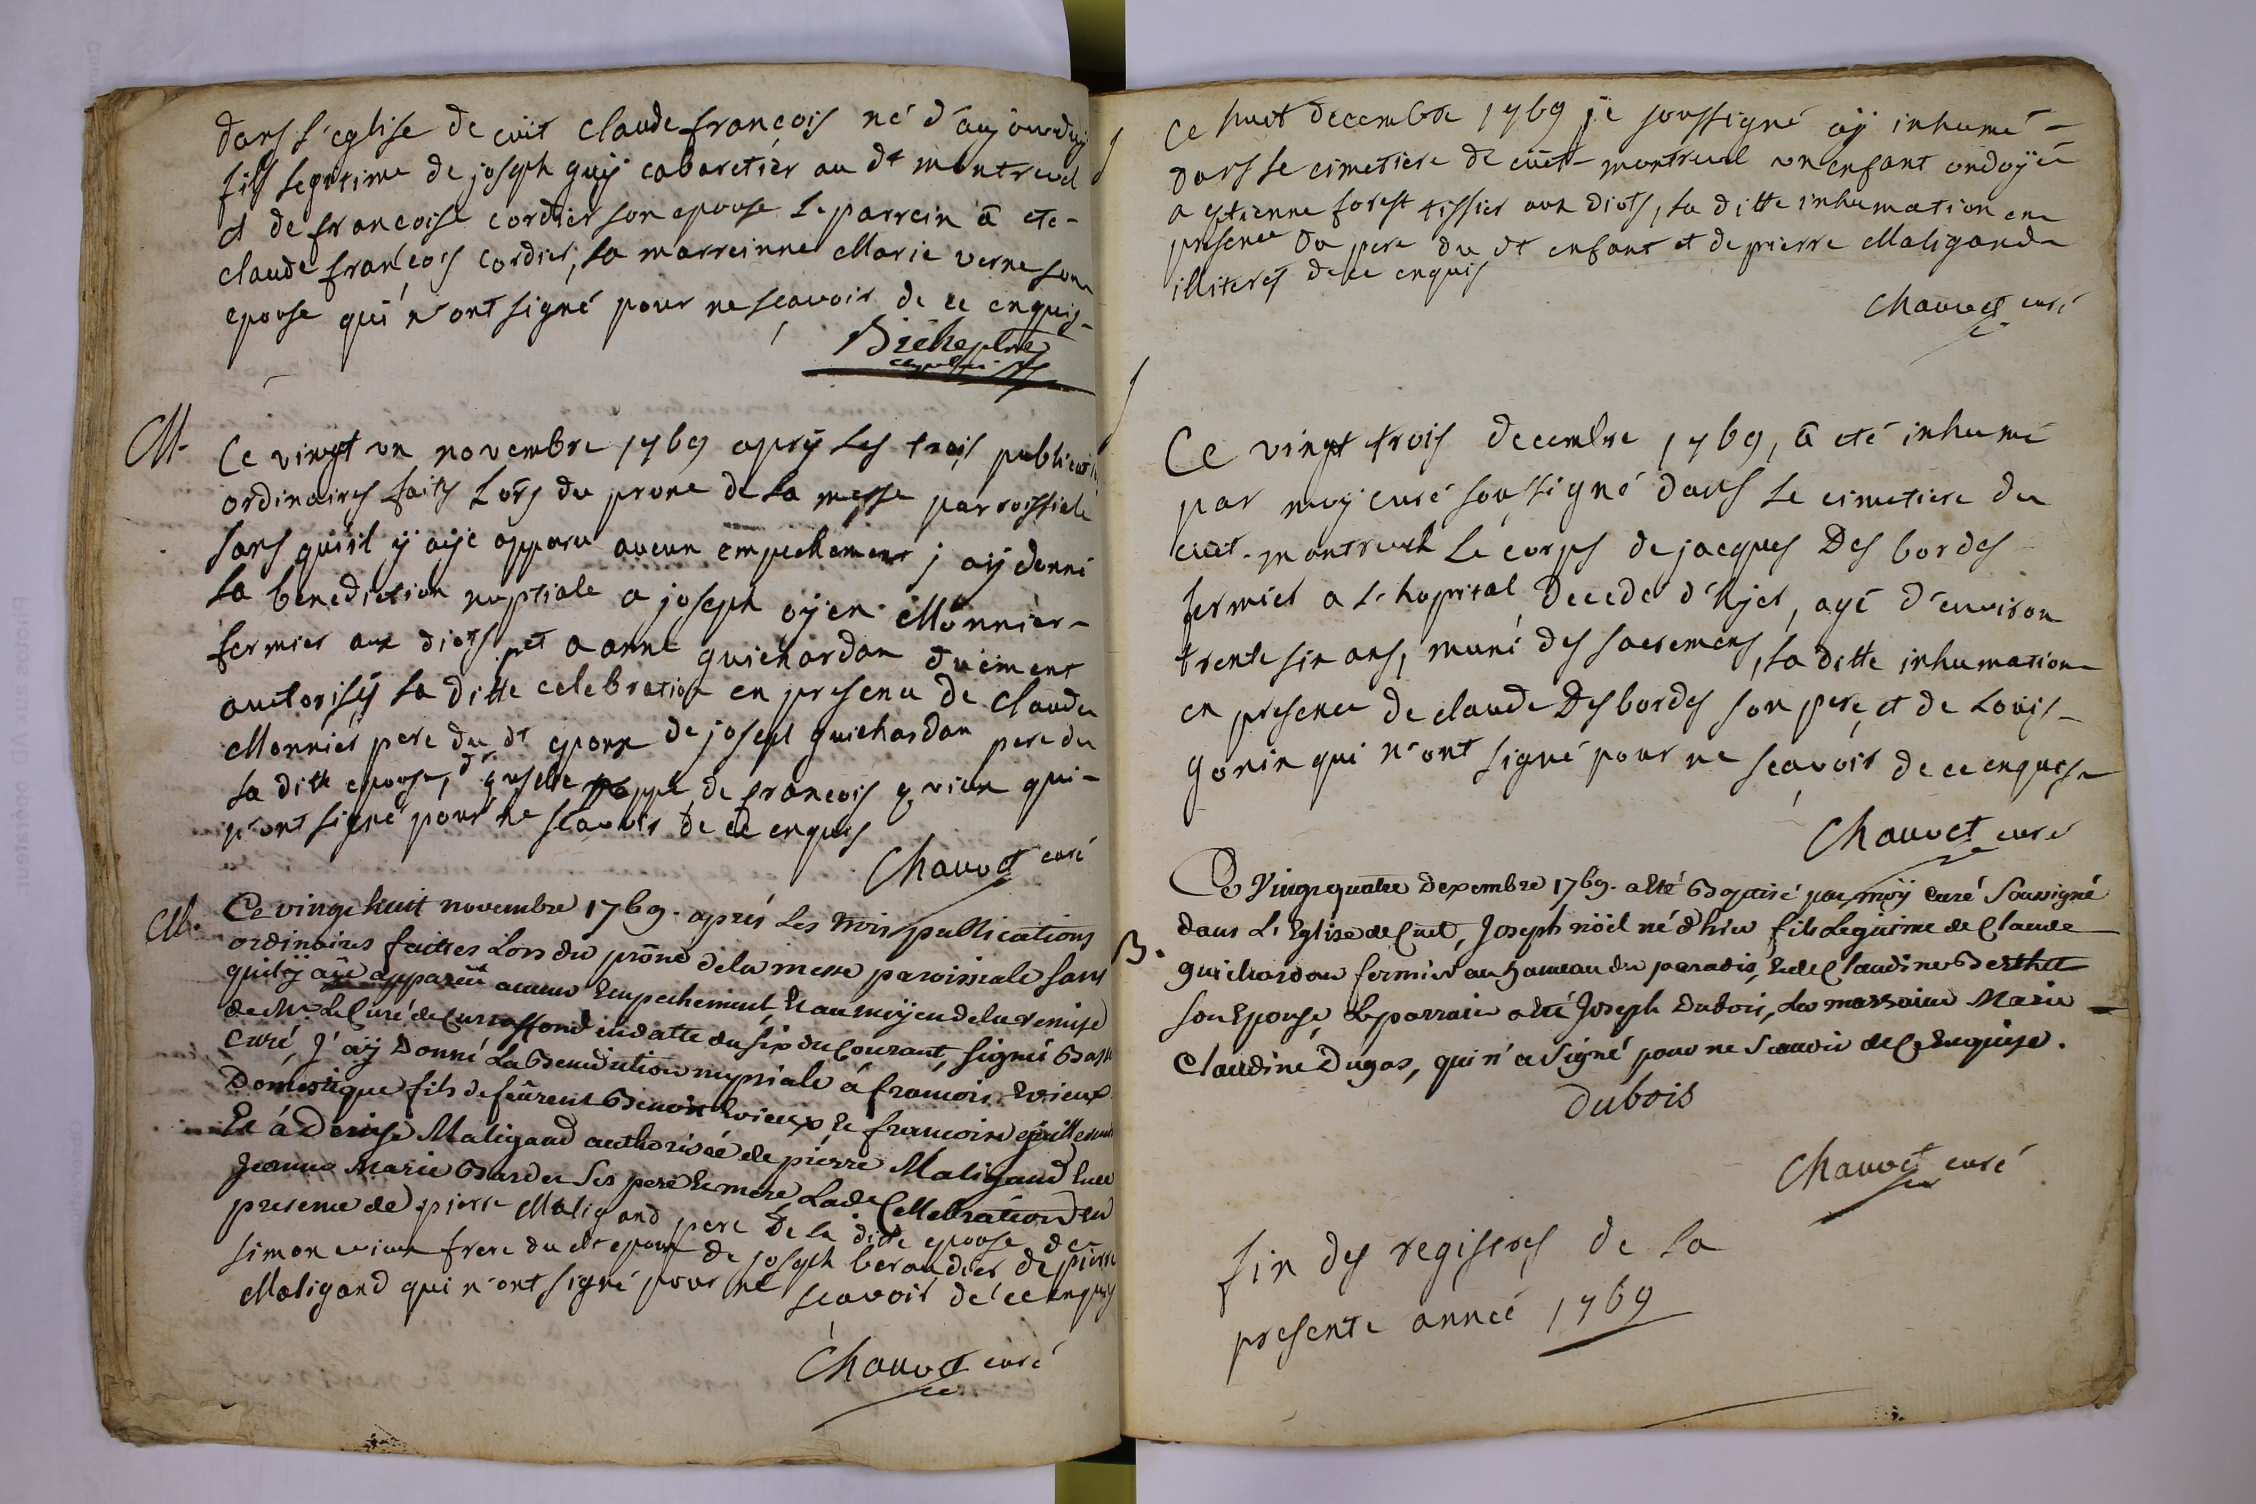 dans l'eglise de cüit claude françois né d'aujourduÿ
fils legitime de joseph guÿ cabaretiér au dt montreuel
et de francoise cordier son epouse Le parrein ā ete
claude françois cordier, la marreinne Marie verne son
epouse qui n'ont signé pour ne scavoir de ce enquis
M.
Ce vingt un novembre 1769 aprÿ les trois publicat
ordinaires faits Lors du prone de la messe parroissiale
sans quiil ÿ aÿe apparu aucun empechement j'aÿ donné
la benediction nuptiale a joseph oÿen Monnier
fermier aux diots et a anne guichardan duëment
auctorisés la ditte celebration en presence de claude
Monnier pere du dt epoux de joseph guichardan pere du
la ditte epouse, de françois qui
n'ont signé pour ne scavoir de ce enquis
Chauvet curé
M.
Ce vingt huit novembre 1769. aprés Les trois publications
ordinaires faittes Lors du prône de la messe paroissiale sans
quil ÿ aÿe apparüt aucuns Empechement, Et au moÿen de la remise
de Mr Le Curé de Curtaffond en datte du six du Courant, signés Bass
Curé, J'aÿ Donné La Benediction nuptiale á francois Evieux
Domestique fils de feürent Benoit Evieux Et francoise
Et á Denise Maligand authorisée de pierre Maligand Et de
Jeanne Marie Bardet Ses pere Et mere, Lade Cellebration en
presence de pierre Maligand pere De la ditte epouse de
simon evieux frere du dt epoux de joseph beraudier de pierre
Maligand qui n'ont signé pour ne scavoir de ce enquis
Chauvet curé
Ce huit decembre 1769 je soussigné aÿ inhumé
dans le cimetiere de cüet-montreuel un enfant ondoÿé
a estienne forest tissier aux diots, la ditte inhumation en
presence du pere du dt enfant et de pierre Maligand
illiterés de ce enquis
Chauvet curé
Ce vingt trois decembre 1769, ā eté inhumé
par moÿ curé soussigné dans le cimetiere du
cüet-montreuel Le corps de jacques Des bordes
fermier a L'hopital Decedé d'hjer, agé d'environ
trente six ans, muni des sacremens, la ditte inhumation
en presence de claude Desbordes son pere, et de Louis
gonin qui n'ont signé pour ne scavoir de ce enquis
Chauvet curé
B.
Ce Vingt quatre Dexembre 1769. a Eté Baptisé par moÿ Curé Soussigné
dans L'Eglise de Cuet, Joseph nöel né d'hier fils Legitime de Claude
guichardan fermier au hameau du paradis, Et de Claudine Berthet
son Epouse, Le parrain a Eté Joseph Dubois, La marraine Marie
Claudine Dugas, qui n'a signé pour ne Scavoir de Ce Enquise.
Dubois
Chauvet curé
fin des registres de la
presente année 1769